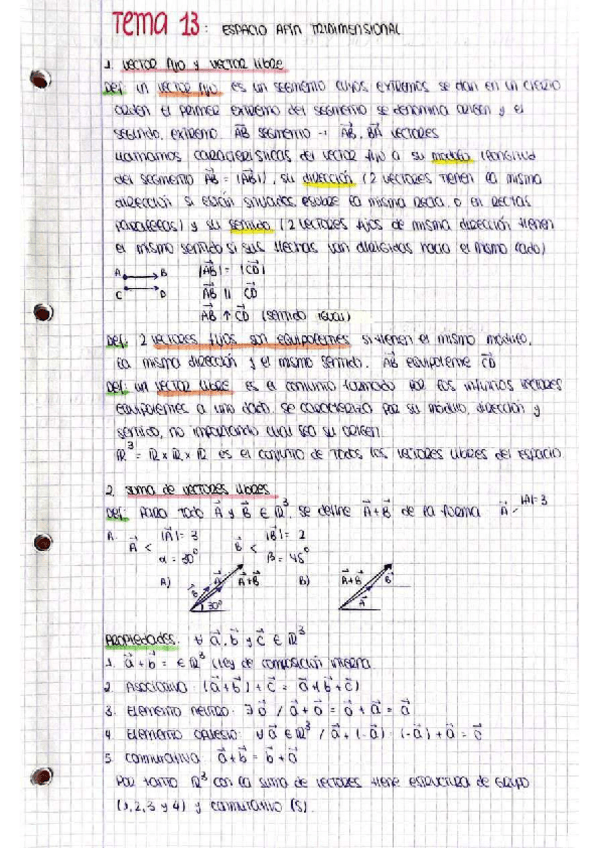 Tema 13: ESPACIO AFÍN TRIDIMENSIONAL
1. VECTOR FIJO Y VECTOR LIBRE
Def: un vector fijo es un segmento cuyos extremos se dan en un cierto
orden el primer extremo del segmento se denomina origen y el
segundo, extremo AB segmento → AB, BA vectores
llamamos características del vector fijo a su módulo (longitud
del segmento AB = |AB|), su dirección (2 vectores tienen la misma
dirección si están situados sobre la misma recta, o en rectas
paralelas) y su sentido (2 vectores fijos de misma dirección tienen
el mismo sentido si sus flechas van dirigidas hacia el mismo lado)
A B |AB| = |CD|
C D AB || CD
AB ↑ CD (sentido igual)
Def: 2 vectores fijos son equipolentes si tienen el mismo módulo,
la misma dirección y el mismo sentido. AB equipolente CD
Def: un vector libre es el conjunto formado por los infinitos vectores
equipolentes a uno dado. Se caracteriza por su módulo, dirección y
sentido, no importando cual sea su origen
ℝ³ = ℝ x ℝ x ℝ es el conjunto de todos los vectores libres del espacio
2. Suma de vectores libres
Def: Para todo A y B ∈ ℝ³, se define A+B de la forma A |A|=3
A < |A| = 3 B < |B| = 2
α = 30° β = 45°
A) B A A+B 30° B) A+B B A
Propiedades: ∀ a, b y c ∈ ℝ³
1. a + b = ∈ ℝ³ (ley de composición interna
2. Asociativa (a+b) + c = a+(b+c)
3. Elemento neutro: ∃ o / a + o = o + a = a
4. Elemento opuesto: ∀ a ∈ ℝ³ / a + (-a) = (-a) + a = o
5. Conmutativa a+b = b+a
Por tanto ℝ³ con la suma de vectores tiene estructura de grupo
(1, 2, 3 y 4) y conmutativo (5).